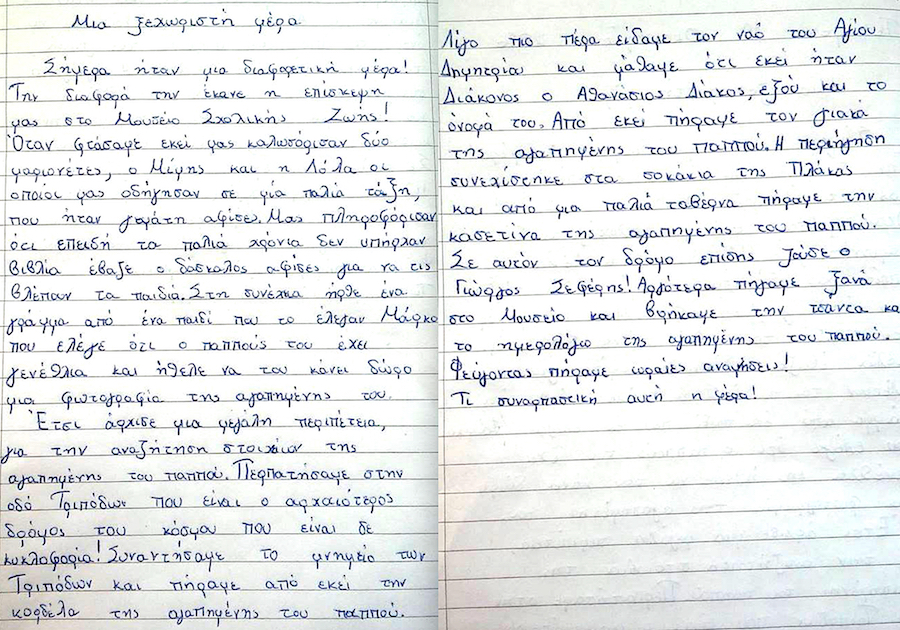 Μια ξεχωριστή μέρα
Σήμερα ήταν μια διαφορετική μέρα!
Την διαφορά την έκανε η επίσκεψη
μας στο Μουσείο Σχολικής Ζωής!
Όταν φτάσαμε εκεί μας καλωσόρισαν δύο
μαριονέτες, ο Μίμης και η Λόλα οι
οποίοι μας οδήγησαν σε μία παλιά τάξη,
που ήταν γεμάτη αφίσες. Μας πληροφόρισαν
ότι επειδή τα παλιά χρόνια δεν υπήρχαν
βιβλία έβαζε ο δάσκαλος αφίσες για να τις
βλέπαν τα παιδιά. Στη συνέχεια ήρθε ένα
γράμμα από ένα παιδί που το έλεγαν Μάρκο
που έλεγε ότι ο παππούς του έχει
γενέθλια και ήθελε να του κάνει δώρο
μια φωτογραφία της αγαπημένης του.
Έτσι άρχισε μια μεγάλη περιπέτεια,
για την αναζήτηση στοιχείων της
αγαπημένης του παππού. Περπατήσαμε στην
οδό Τριπόδων που είναι ο αρχαιότερος
δρόμος του κόσμου που είναι σε
κυκλοφορία! Συναντήσαμε το μνημείο των
Τριπόδων και πήραμε από εκεί την
κορδέλα της αγαπημένης του παππού.
Λίγο πιο πέρα είδαμε τον ναό του Αγίου
Δημητρίου και μάθαμε ότι εκεί ήταν
Διάκονος ο Αθανάσιος Διάκος, εξού και το
όνομά του. Από εκεί πήραμε τον γιακά
της αγαπημένης του παππού. Η περιήγηση
συνεχίστηκε στα σοκάκια της Πλάκας
και από μια παλιά ταβέρνα πήραμε την
κασετίνα της αγαπημένης του παππού.
Σε αυτόν τον δρόμο επίσης ζούσε ο
Γιώργος Σεφέρης! Αργότερα πήγαμε ξανά
στο Μουσείο και βρήκαμε την τσάντα κα
το ημερολόγιο της αγαπημένης του παππού.
Φεύγοντας πήραμε ωραίες αναμνήσεις!
Τι συναρπαστική αυτή η μέρα!